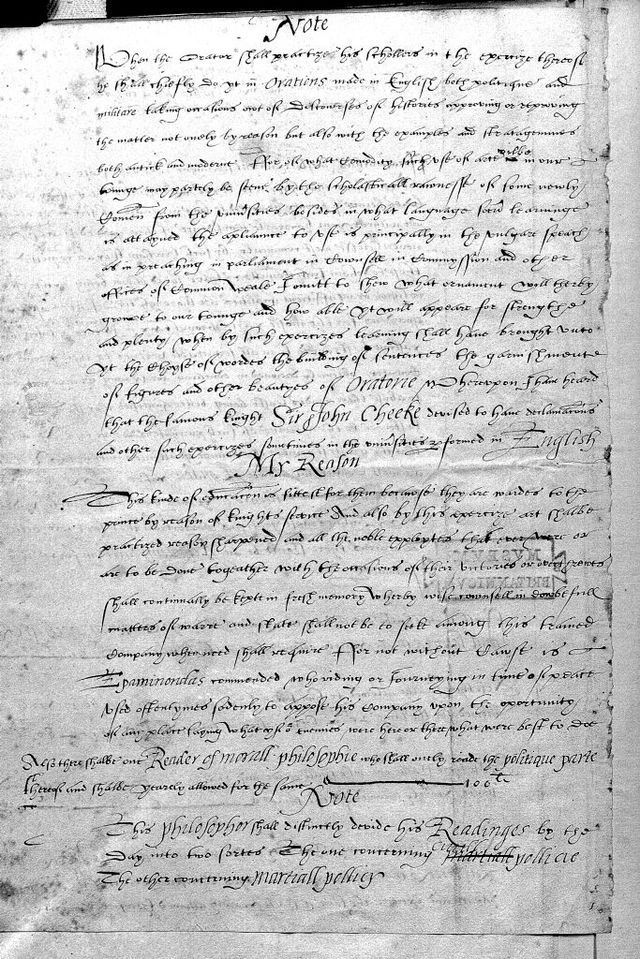 Note
When the Orator shall practize his schollers in the exercize thereof
he shall chiefly do yt in Orations made in English both politique and
militare taking occasions owt of discowrses of histories approving or reproving
the matter not onely by reason but also with the examples and stratagemmes
both antick and moderne. ffor of what comodity such vse of arte wilbe in our
tounge may partely be seene by the scholasticall rawnesse of some newly
Comen from the vniuersities besides in what language soeuer learninge
is attayned the apliaunce to vse is principally in the vulgare speach
as in preaching in parliament in Cownsell in Commyssion and other
offices of Common Weale I omitt to shew what ornament will therby
growe to our tounge and how able yt will appeare for strengthe
and plenty when by such exercizes learning shall have brought vnto
yt the Choyse of wordes the building of sentences the garnishmente
of figures and other beautyes of Oratorie Wherevpon I haue heard
that the famous knight Sir John Cheeke devised to have declamacons
and other such exercizes sometimes in the vniuersities performed in English
My Reason
This kinde of educacon is fittest for them becawse they are wardes to the
prince by reason of knights service And also by this exercize art shalbe
practized reason sharpened and all the noble exployтes that ever were or
are to be done togeather with the occasions of their victories or overthrowes
shall continually be kept in fresh memory Wherby wise cownsell in dowbtfull
matters of warre and state shall not be to seek among this trained
Company when need shall require ffor not without Cawse is
Epaminondas commended who riding or Iourneying in time of peace
vsed oftentymes sodenly to appose his Company vpon the oportunity
of any place saying what yf our enemies were here or there what were best to doe
Also there shalbe one Reader of morall philosophie who shall onely reade the politique parte
therof and shalbe yearly allowed for the same 100li
Note
This philosopher shall distinctly devide his Readinges by the
Day into two sortes The one concerning Civill martiall pollicie
The other concerning martiall pollicy
MVSEVM
BRITANNICVM